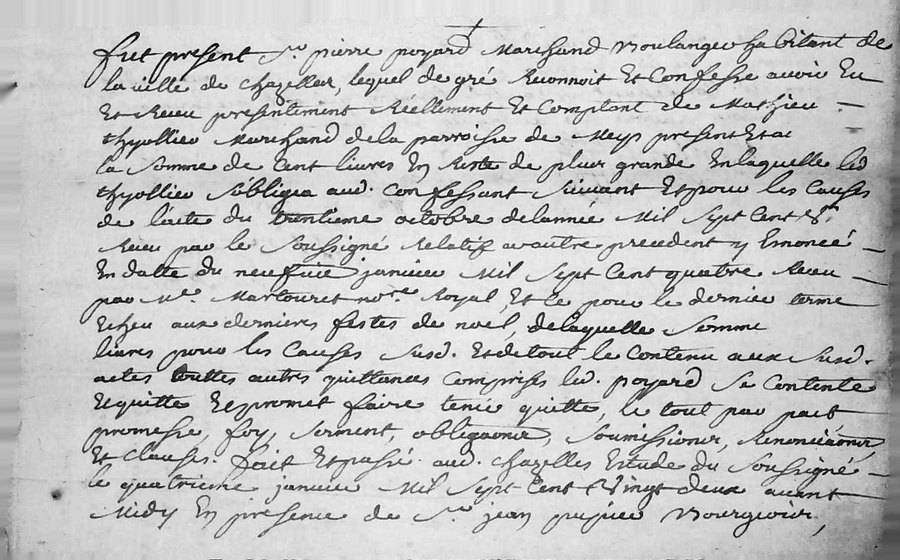 fut present Sr. pierre poyard Marchand Boulanger habitant de
la ville de chazelles, lequel de gré Reconnoit Et Confesse avoir Eu
Et Receu presentement Réellement Et Comptant de Mathieu
thyollier Marchand de la parroisse de Meys present Et ac
la Somme de Cent livres En Reste de plus grande En laquelle led
thyollier S'obligea aud. Confessant Suivant Et pour les Causes
de l'acte du trentieme octobre de l'année Mil Sept Cent
Receu par le Soussigné Relatif a autre precedent y Enoncé
En datte du neufvie janvier Mil Sept Cent quatre Receu
par Me. Martouret nore. Royal, Et ce pour le dernier terme
Echeu aux dernieres festes de noel, de laquelle Somme
livres pour les Causes Susd. Et de tout le Contenu aux Susd.
actes touttes autres quittances Comprises led. poyard Se Contente
Et quitte Et promet faire tenir quitte, le tout par pact
promesse, foy, Serment, obligaons, Soumissions, Renonciaons
Et Clauses. fait Et passé aud. chazelles Estude du Soussigné
le quatrieme janvier Mil Sept Cent Vingt deux avant
Midy En presence de Sr. jean Bourgeois,